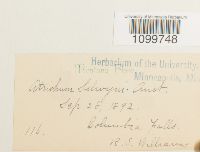 University of Minnesota Herbarium
1099748
Herbarium of the University,
Minneapolis,
Atrichum Selwyni Aust.
Sep 28, 1892.
Columbia Falls.
R. S. Williams